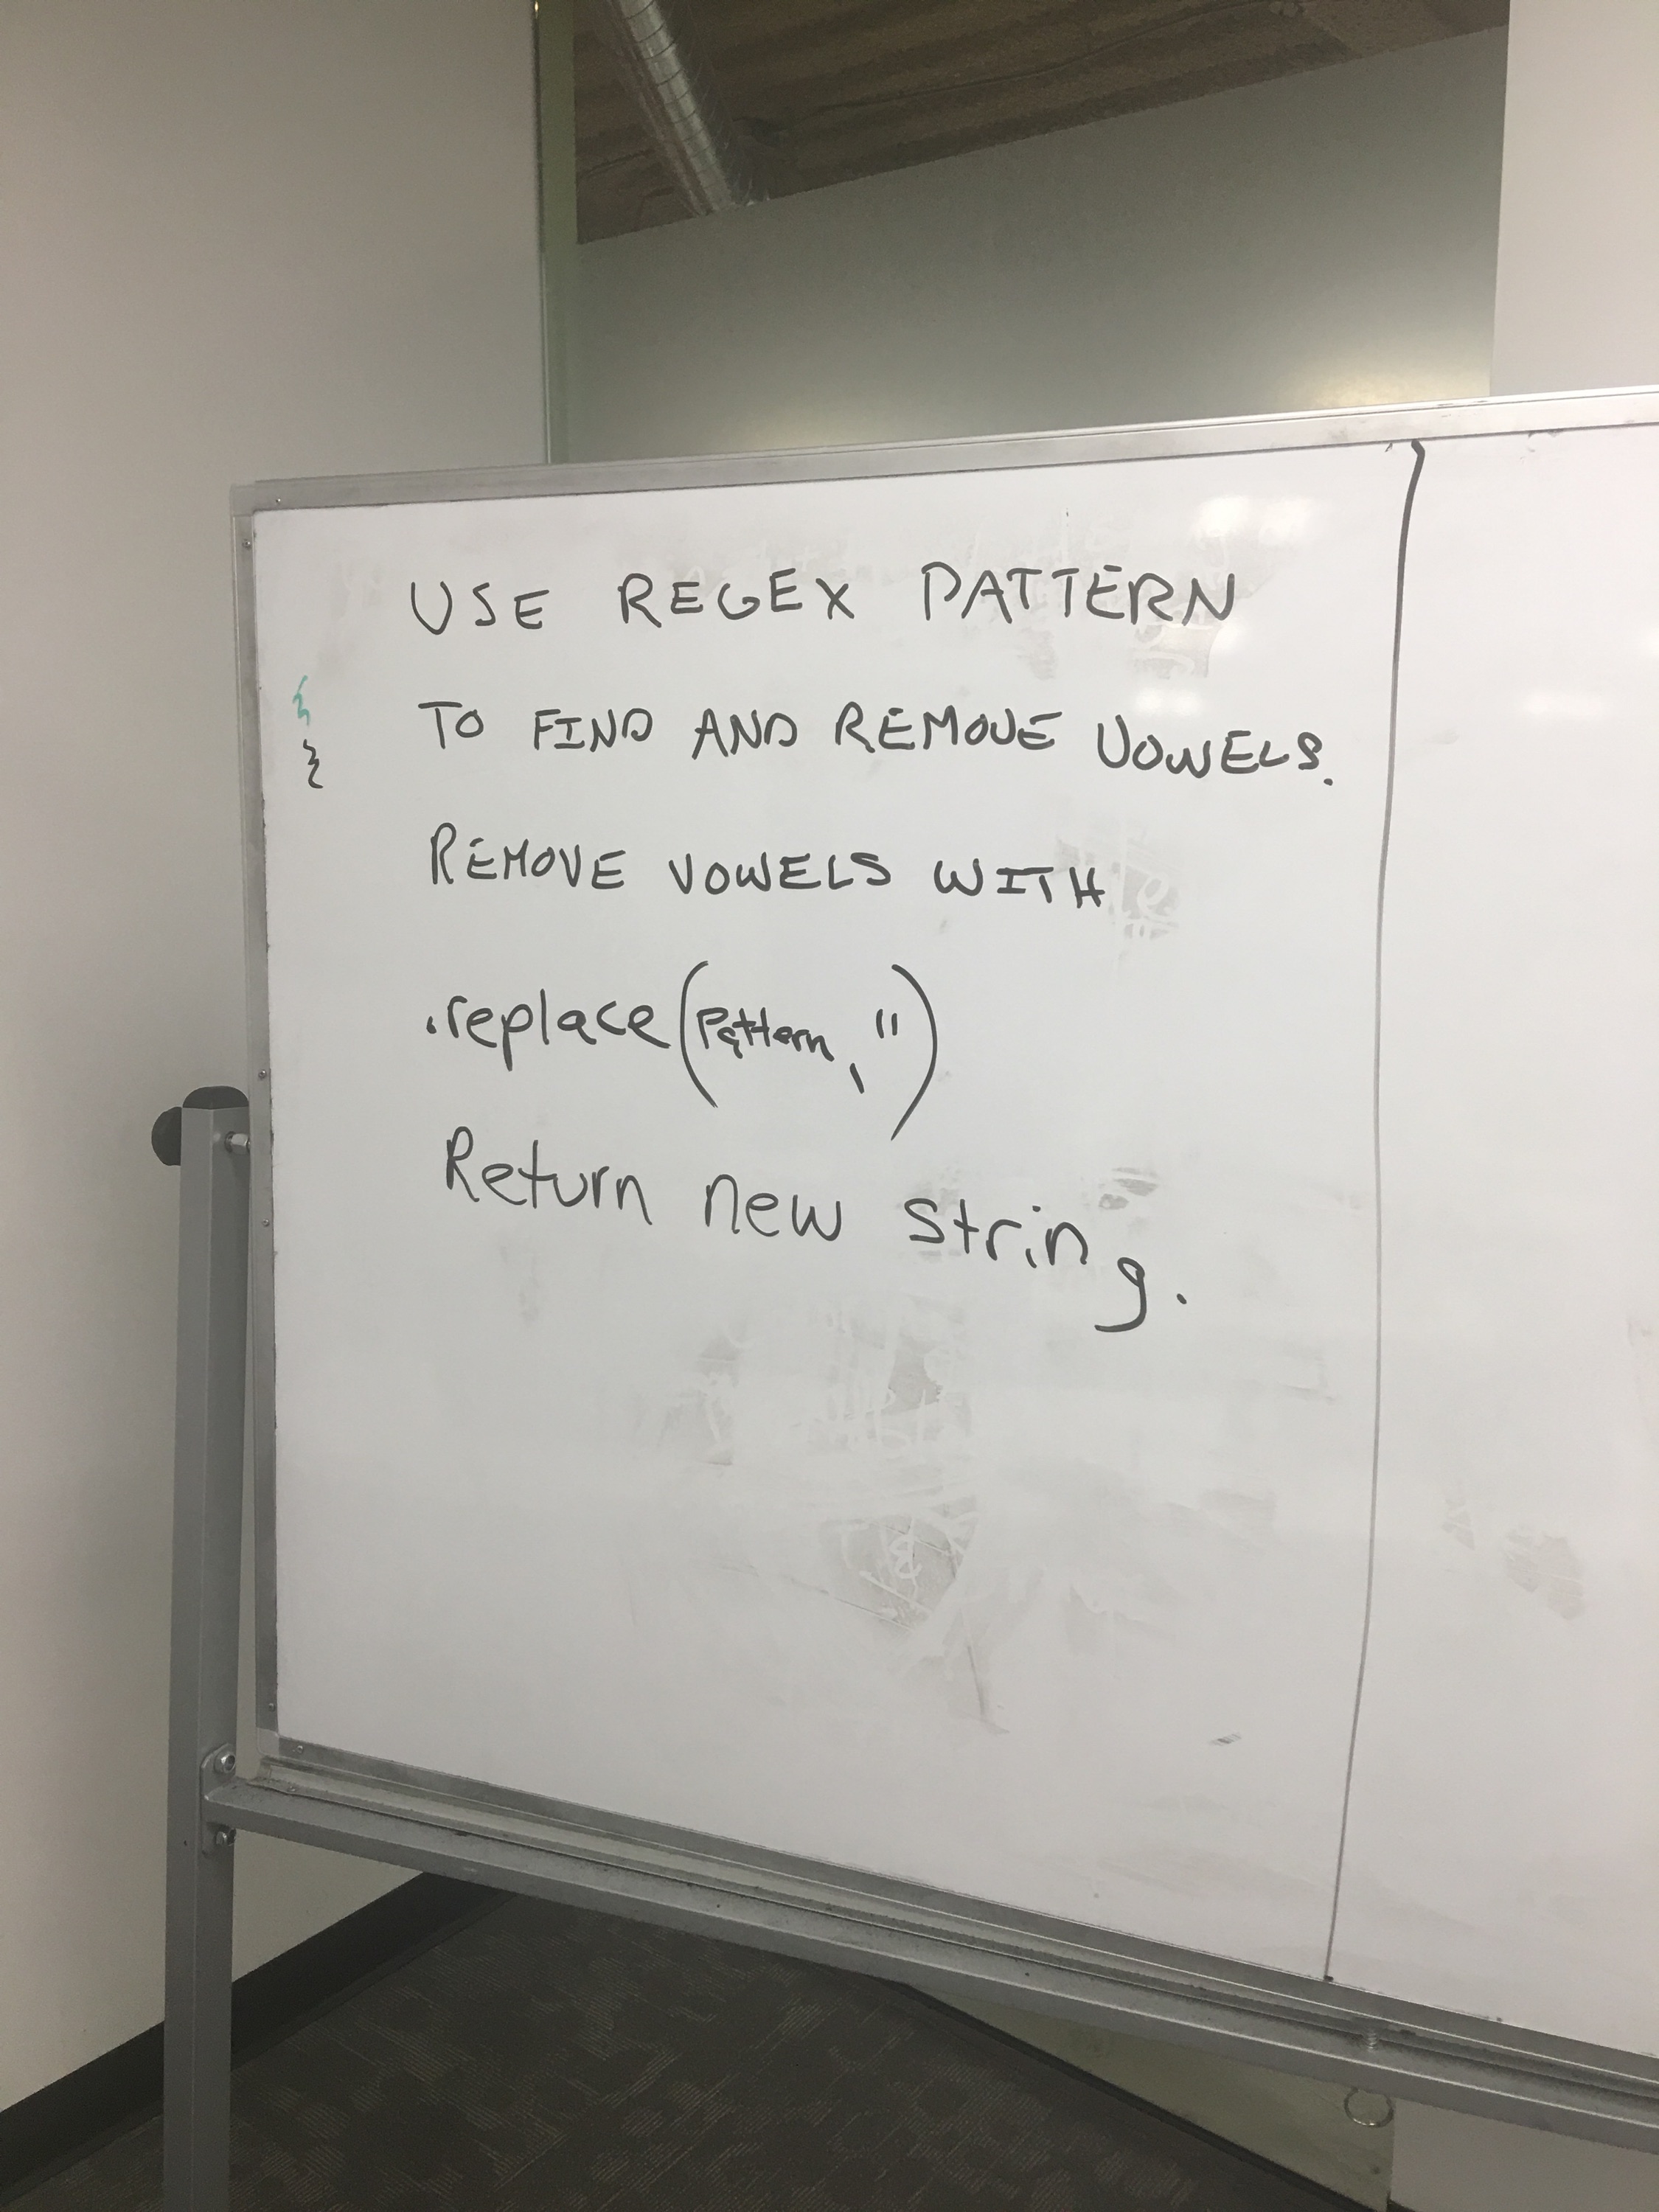 USE REGEX PATTERN
TO FIND AND REMOVE VOWELS.
REMOVE VOWELS WITH
.replace(Pattern, '')
Return new string.